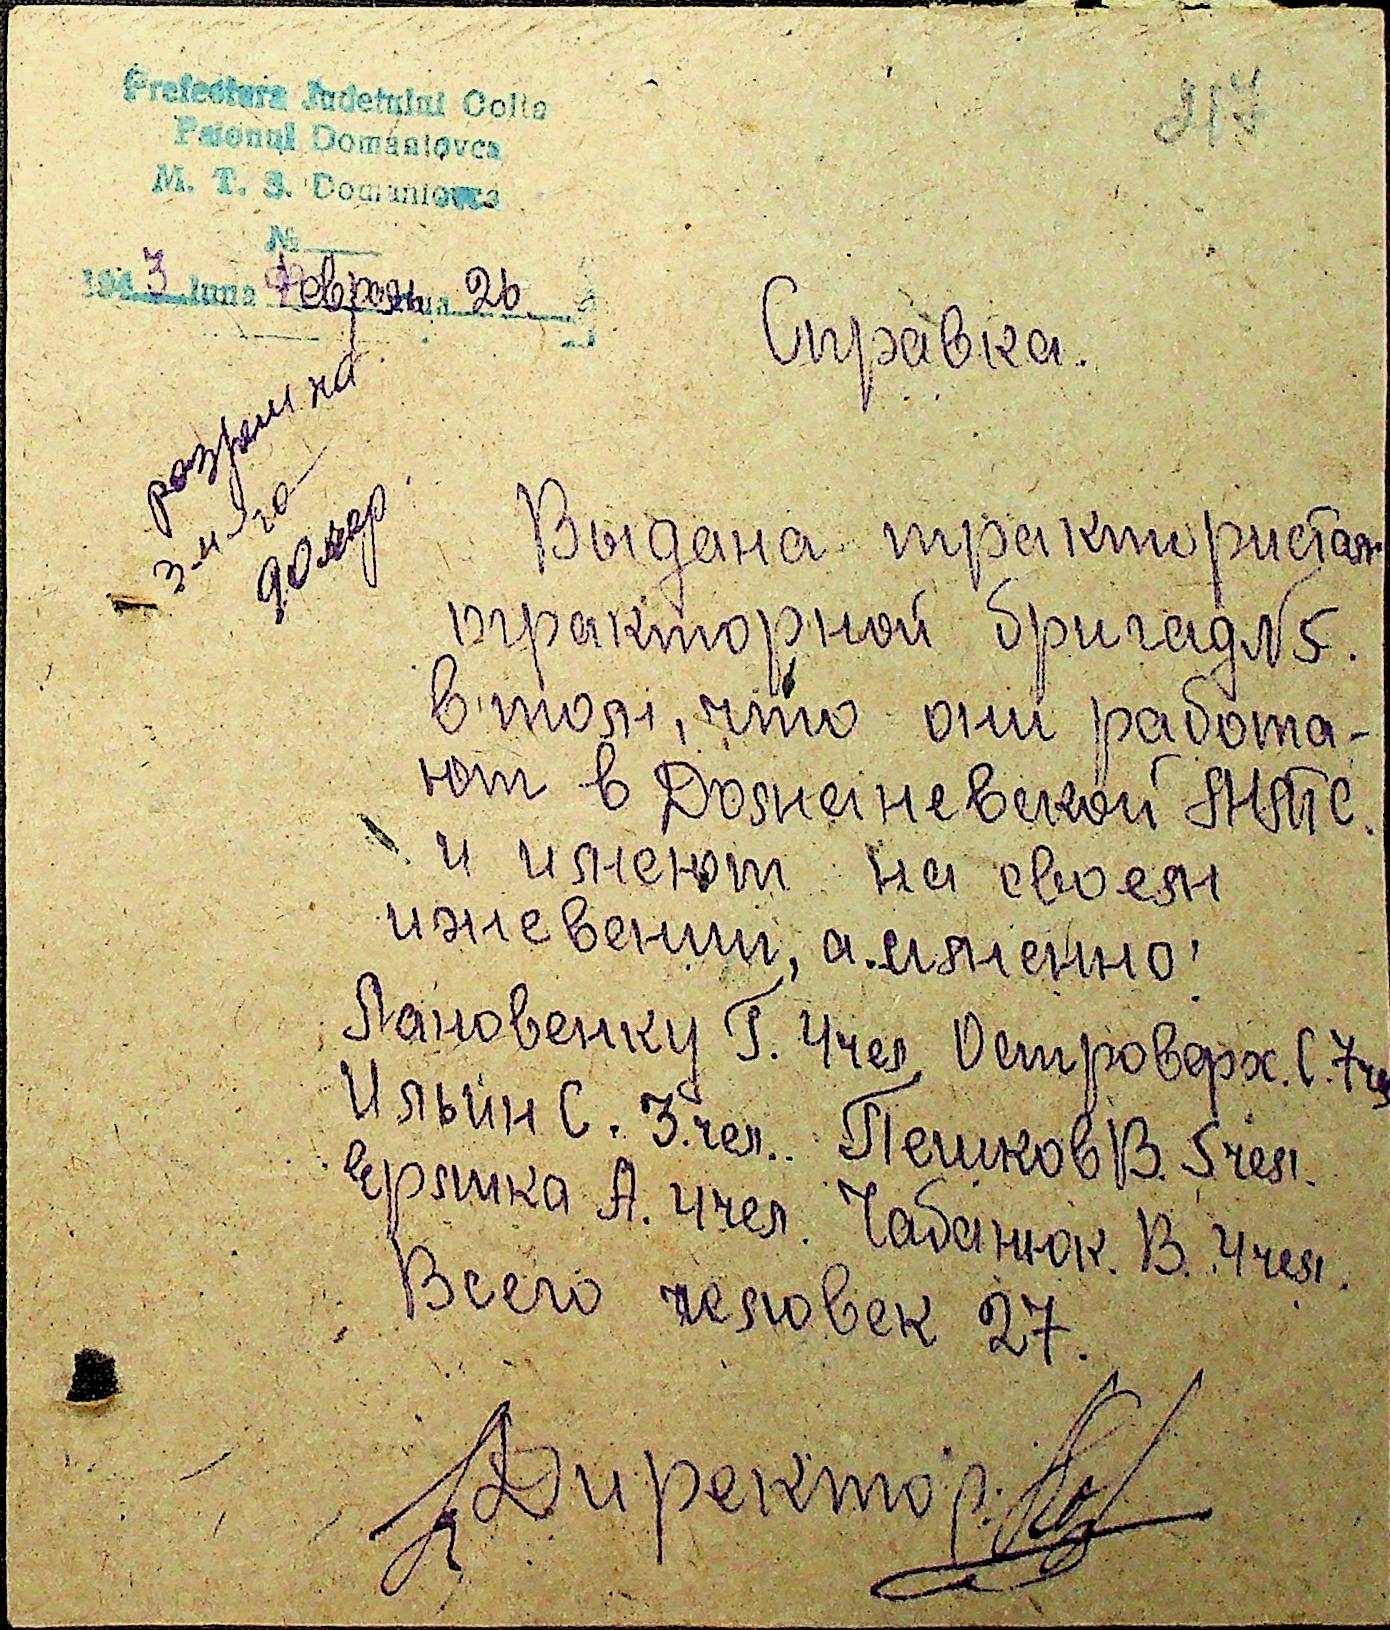 Prefectura Judetului Golta
217
Raionul Domaniovca
M. T. S. Domaniovca
№
1943 luna Февраль ziua 26
Справка.
разреш на
90 кар
Выдана трактористам
тракторной бригад №5.
в том, что они работа-
ют в Доманевской МТС.
и имеют на своем
ижевении, а именно:
Лановенку Г. 4 чел. Островерх. С. 7 чел
Ильин С. 3 чел.. Пешков В. 5 чел.
Ермка А. 4 чел. Чабанюк. В. 4 чел.
Всего человек 27.
Директор.